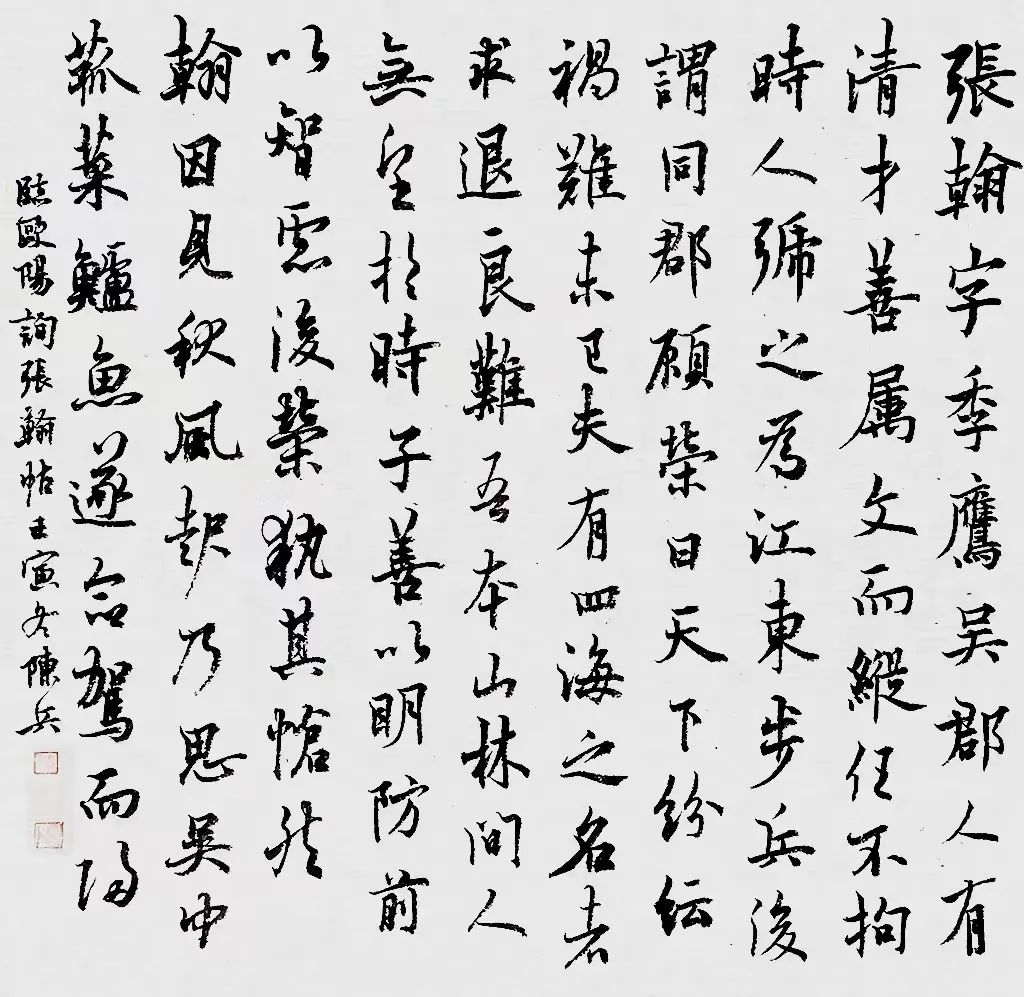 張翰字季鷹吴郡人有
清才善属文而縱任不拘
時人號之為江東步兵後
謂同郡顧榮曰天下紛紜
禍難未已夫有四海之名者
求退良難吾本山林間人
無望於時子善以明防前
以智慮後榮執其愴然
翰因見秋風起乃思吴中
菰菜鱸魚遂命駕而歸
臨歐陽詢張翰帖壬寅冬陳兵